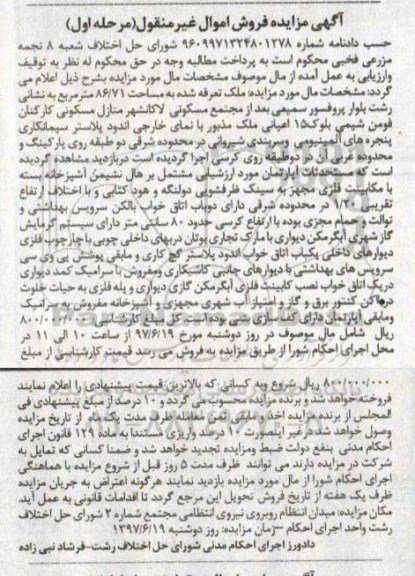 آگهی مزایده فروش اموال غیرمنقول(مرحله اول)
حسب دادنامه شماره ۹۶۰۹۹۷۱۳۲۴۸۰۱۲۷۸ شورای حل اختلاف شعبه ۸ نجمه
مزرعی فخبی محکوم است به پرداخت مطالبه وجه در حق محکوم له نظر به توقیف
وارزیابی به عمل آمده از مال موصوف مشخصات مال مورد مزایده بشرح ذیل اعلام می
گردد: مشخصات مال مورد مزایده: ملک تعرفه شده به مساحت ۸۶/۷۱ مترمربع به نشانی
رشت بلوار پروفسور سمیعی بعد از مجتمع مسکونی لاکانشهر منازل مسکونی کارکنان
فومن شیمی بلوک۱۵ اعیانی ملک مذبور با نمای خارجی اندود پلاستر سیمانکاری
پنجره های آلمینیومی وسربندی شیروانی در محدوده شرقی دو طبقه روی پارکینگ و
محدوده غربی آن در دوطبقه روی کرسی اجرا گردیده است دربازدید مشاهده گردیده
است که مستحدثات آپارتمان مورد ارزشیابی مشتمل بر هال نشیمن آشپزخانه بسته
با مکابینت فلزی مجهز به سینک ظرفشویی دولنگه و هود کتابی و با اختلاف ارتفاع
تقریبی ۱/۲۰ در محدوده شرقی دارای دوباب اتاق خواب بالکن سرویس بهداشتی و
توالت و حمام مجزی بوده با ارتفاع کرسی حدود ۸۰ سانتی متر دارای سیستم گرمایش
گاز شهری آبگرمکن دیواری با مارک تجاری بوتان دربهای داخلی چوبی با چارچوب فلزی
دیوارهای داخلی یکباب اتاق خواب اندود پلاستر گچ کاری و مابقی پوشش پی وی سی
سرویس های بهداشتی با دیوارهای جانبی کاشیکاری ومفروش با سرامیک کمد دیواری
دریک اتاق خواب نصب کابینت فلزی آبگرمکن گازی دیواری و پله فلزی به حیات خلوت
دراماکن کنتور برق و گاز و امتیاز آب شهری مجهزی و آشپزخانه مفروش به سرامیک
ومابقی آپارتمان دارای کف سازی بتنی بوده است. کل مبلغ کارشناسی ۸۰۰/۰۰۰/۰۰۰
ریال شامل مال موصوف در روز دوشنبه مورخ ۹۷/۶/۱۹ از ساعت ۱۰ الی ۱۱ در
محل اجرای احکام شورا از طریق مزایده به فروش می رسد قیمت کارشناسی از مبلغ
۸۰۰/۰۰۰/۰۰۰ ریال شروع وبه کسانی که بالاترین قیمت پیشنهادی را اعلام نمایند
فروخته خواهد شد و برنده مزایده محسوب می گردد و ۱۰ درصد از مبلغ پیشنهادی فی
المجلس از برنده مزایده اخذ و مابقی ثمن معامله ظرف مدت یک ماه از تاریخ مزایده
وصول خواهد شد درغیر اینصورت ۱۰ درصد واریزی مستندا به ماده ۱۲۹ قانون اجرای
احکام مدنی بنفع دولت ضبط ومزایده تجدید خواهد شد و ضمنا کسانی که تمایل به
شرکت در مزایده دارند می توانند ظرف مدت ۵ روز قبل از شروع مزایده با هماهنگی
اجرای احکام شورا از مال مورد مزایده بازدید نمایند هرگونه اعتراض به جریان مزایده
ظرف یک هفته از تاریخ فروش تحویل این مرجع گردد تا اقدامات قانونی به عمل آید.
مکان مزایده: میدان انتظام روبروی نیروی انتظامی مجتمع شماره ۲ شورای حل اختلاف
رشت واحد اجرای احکام –زمان مزایده: روز دوشنبه ۱۳۹۷/۶/۱۹
دادورز اجرای احکام مدنی شورای حل اختلاف رشت-فرشاد نبی زاده